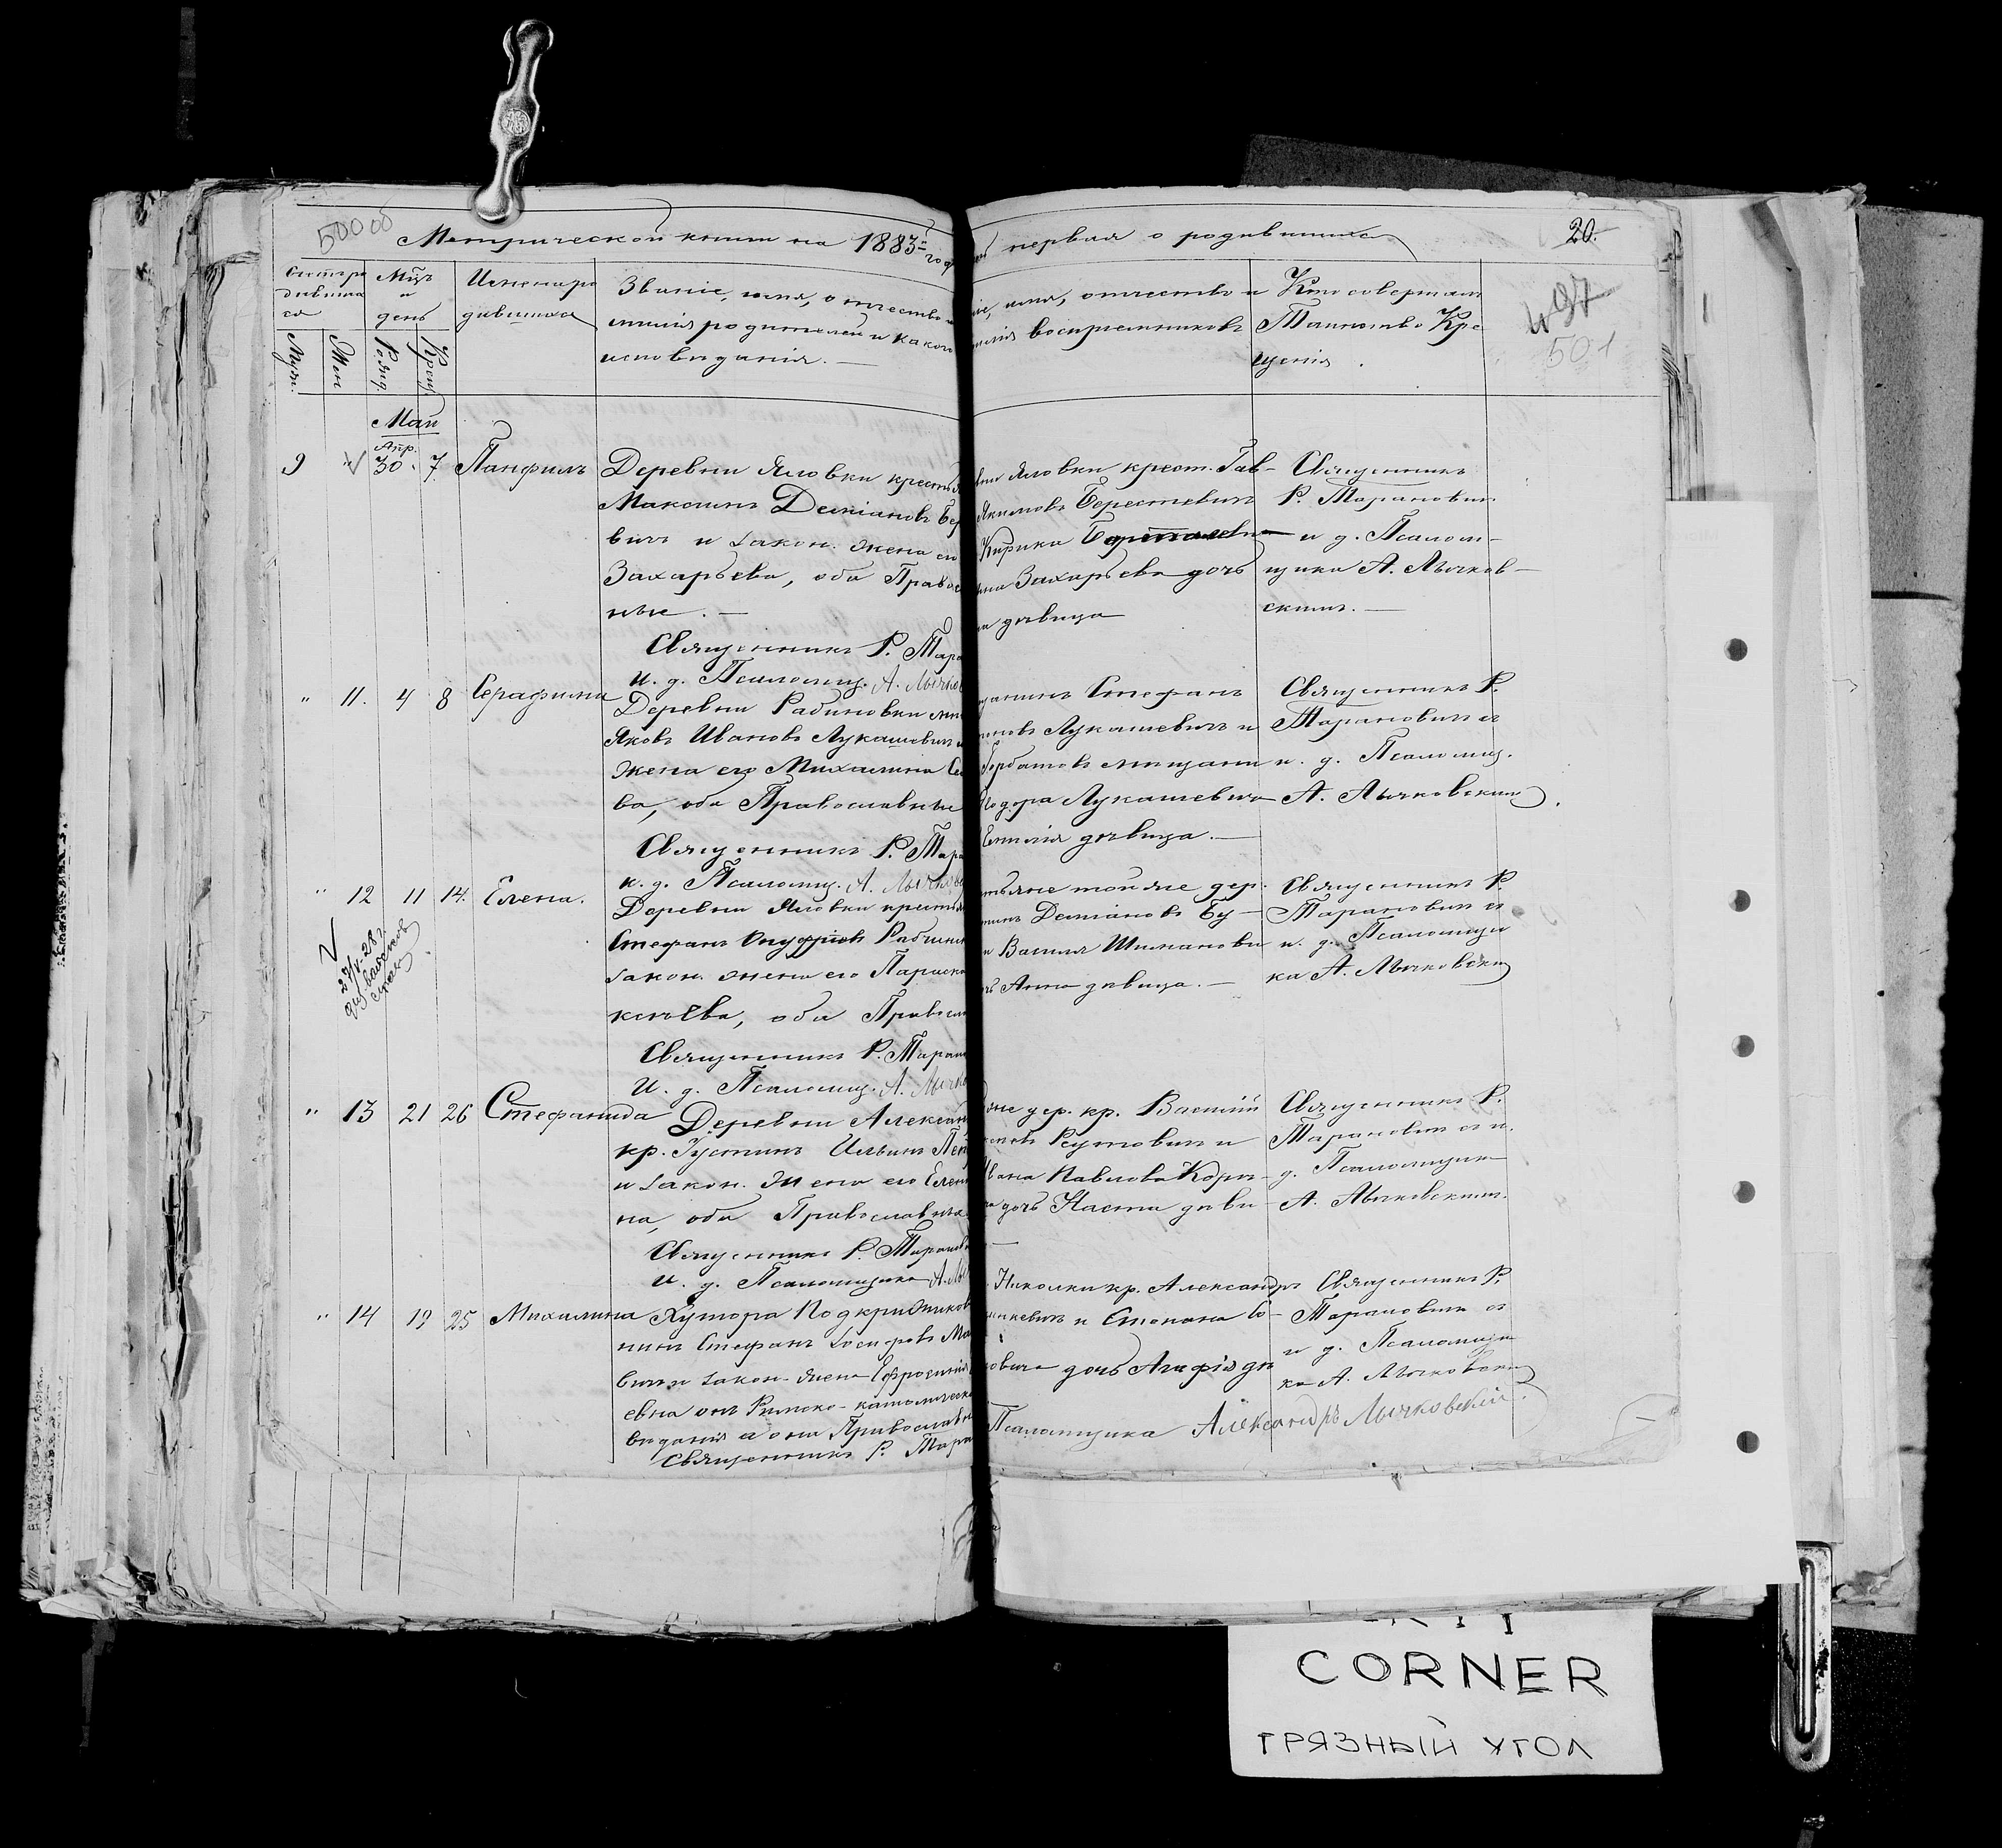 50000
Метрической книги на 1883й год
первая о родившихся
20.
497
501
Счетъ ро
дивших
ся
Муж.
Жен
Мѣць
и
день
Рожд.
Крещ.
Имена ро
дившихся
Званіе, имя, отчество
милія родителей и какого
исповѣданія. —
имя, отчество и
воспріемниковъ
Кто совершалъ
Таинство Кре
щенія.
Май
Апр.
9 30. 7. Панфилъ
Деревни Яловки крестья
Максимъ Деміановъ Бер
вичъ и закон. жена его
Захарьева, оба Правос
ные. —
Священникъ Р. Тара
И. д. Псаломщ. А. Лычков
Яловки крест. Гав-
Якимовъ Берестевичъ
Кирика
Захарьева дочь
дѣвица
Священникъ
Р. Тарановичъ
и д. Псалом-
щика А. Лычков-
скимъ. —
" 11. 4 8 Серафима
Деревни Рабиновки мѣ
Яковъ Ивановъ Лукашевичъ и
жена его Михалина Се
ва, оба Православные
Священникъ Р. Тара
и. д. Псаломщ. А. Лычков
щанинъ Стефанъ
новъ Лукашевичъ и
Горбатовъ мѣщани
Ѳодора Лукашевича
Емилія дѣвица. —
Священникъ Р.
Тарановичъ съ
и. д. Псаломщ.
А. Лычковскимъ.
" 12 11 14. Елена.
Деревни Яловки крестья
Стефанъ Онуфріевъ Рабчин
закон. жена его Параск
кентѣва, оба Правосл
Священникъ Р. Таран
И. д. Псаломщ. А. Лычко
тьяне той же дер.
Деміановъ Бу-
и Васила Шиманови
Анна дѣвица. —
Священникъ Р.
Тарановичъ съ
и. д. Псаломщи
ка А. Лычковски
" 13 21 26 Стефанида
Деревни Алексан
кр. Іустинъ Ильинъ Пет
и закон. жена его Елен
на, оба Православные
Священникъ Р. Таранов
и. д. Псаломщика А. Лы
же дер. кр. Василій
Реутовичъ и
Ивана Павлова Корж-
дочь Настя дѣви
—
Священникъ Р.
Тарановичъ съ и.
д. Псаломщика
А. Лычковскимъ.
" 14 19 25 Михалина
Хутора Подкрижников
нинъ Стефанъ Іосифовъ Ма
вичъ и закон. жена Ефросинія
евна онъ Римско-католическ
вѣданія а она Православн
Священникъ Р. Тара
Николки кр. Александръ
и Степана Со-
дочь Агафія дѣ
Священникъ Р.
Тарановичъ съ
и д. Псаломщи
ка А. Лычковски
Псаломщика Александръ Лычковскій.
CORNER
ГРЯЗНЫЙ УГОЛ